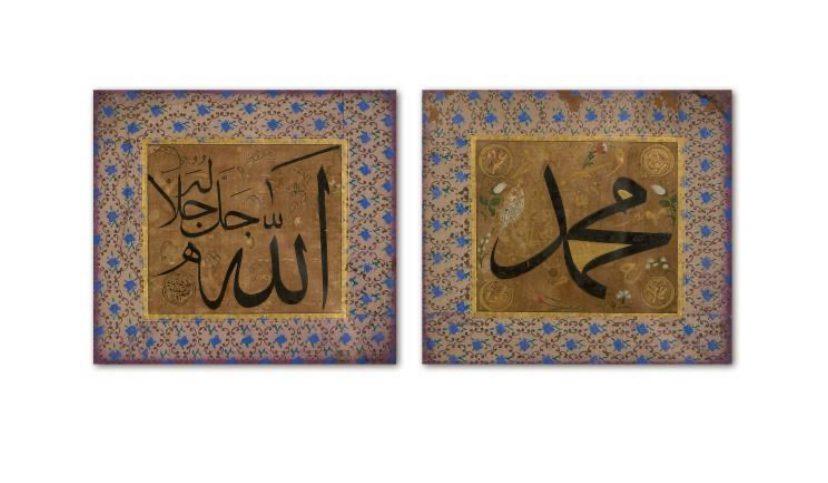 الله جل جلاله
محمد